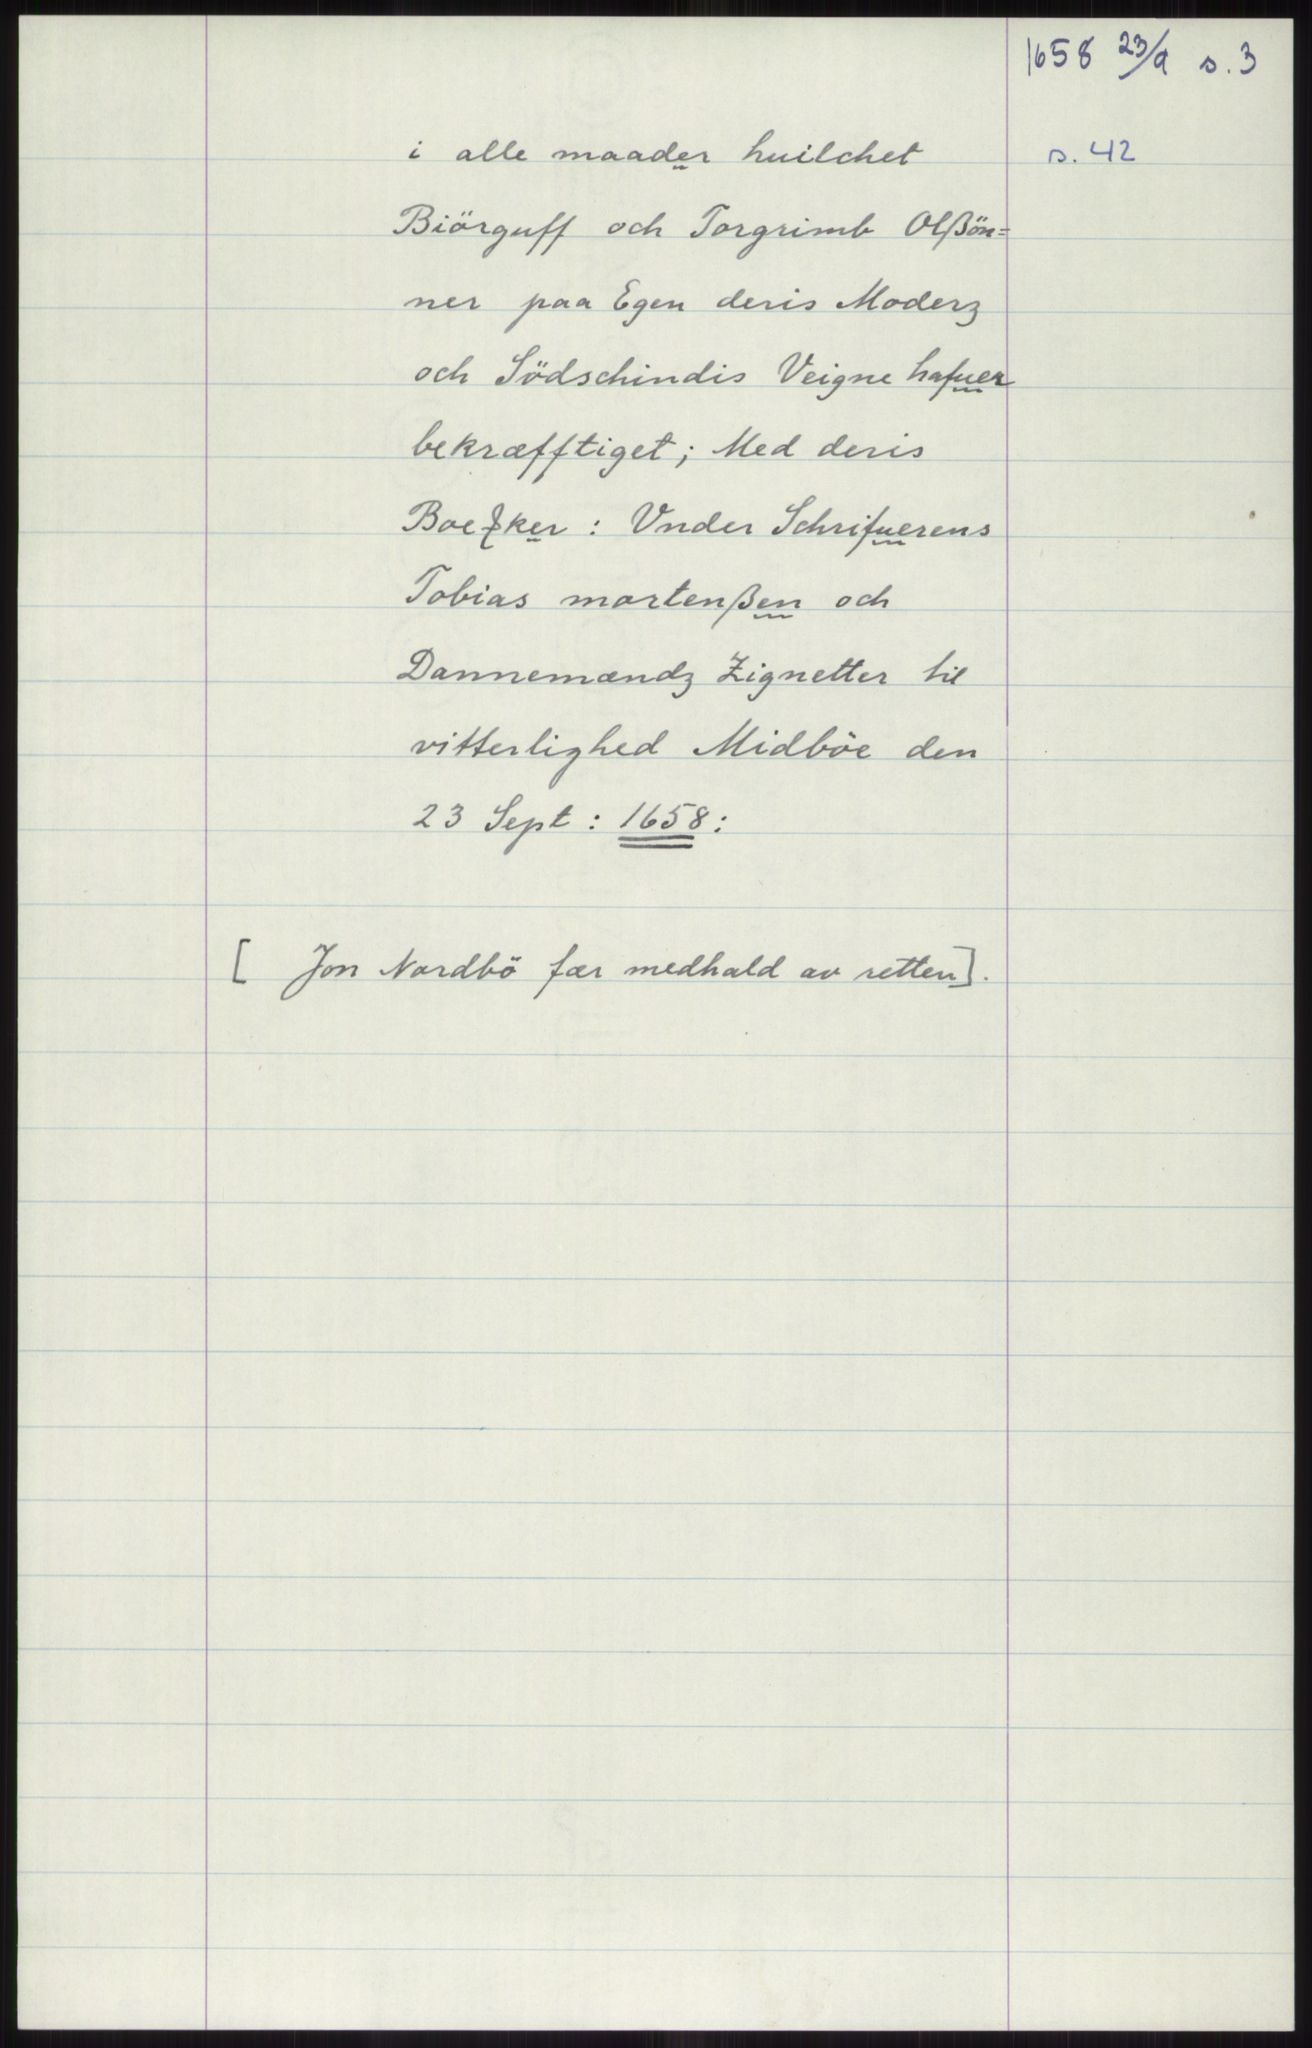 1658 23/9 s. 3
i alle maader huilchet s. 42
Biörguff och Torgrimb Olßön=
ner paa Egen deris Moderz
och Södschindis Veigne hafuer
bekræfftiget; Med deris
Boeker : Vnder Schrifuerens
Tobias mortenßen och
Dannemændz Zignetter til
vitterlighed Midböe den
23 Sept : 1658 :
[ Jon Nordbö fær medhald av retten].